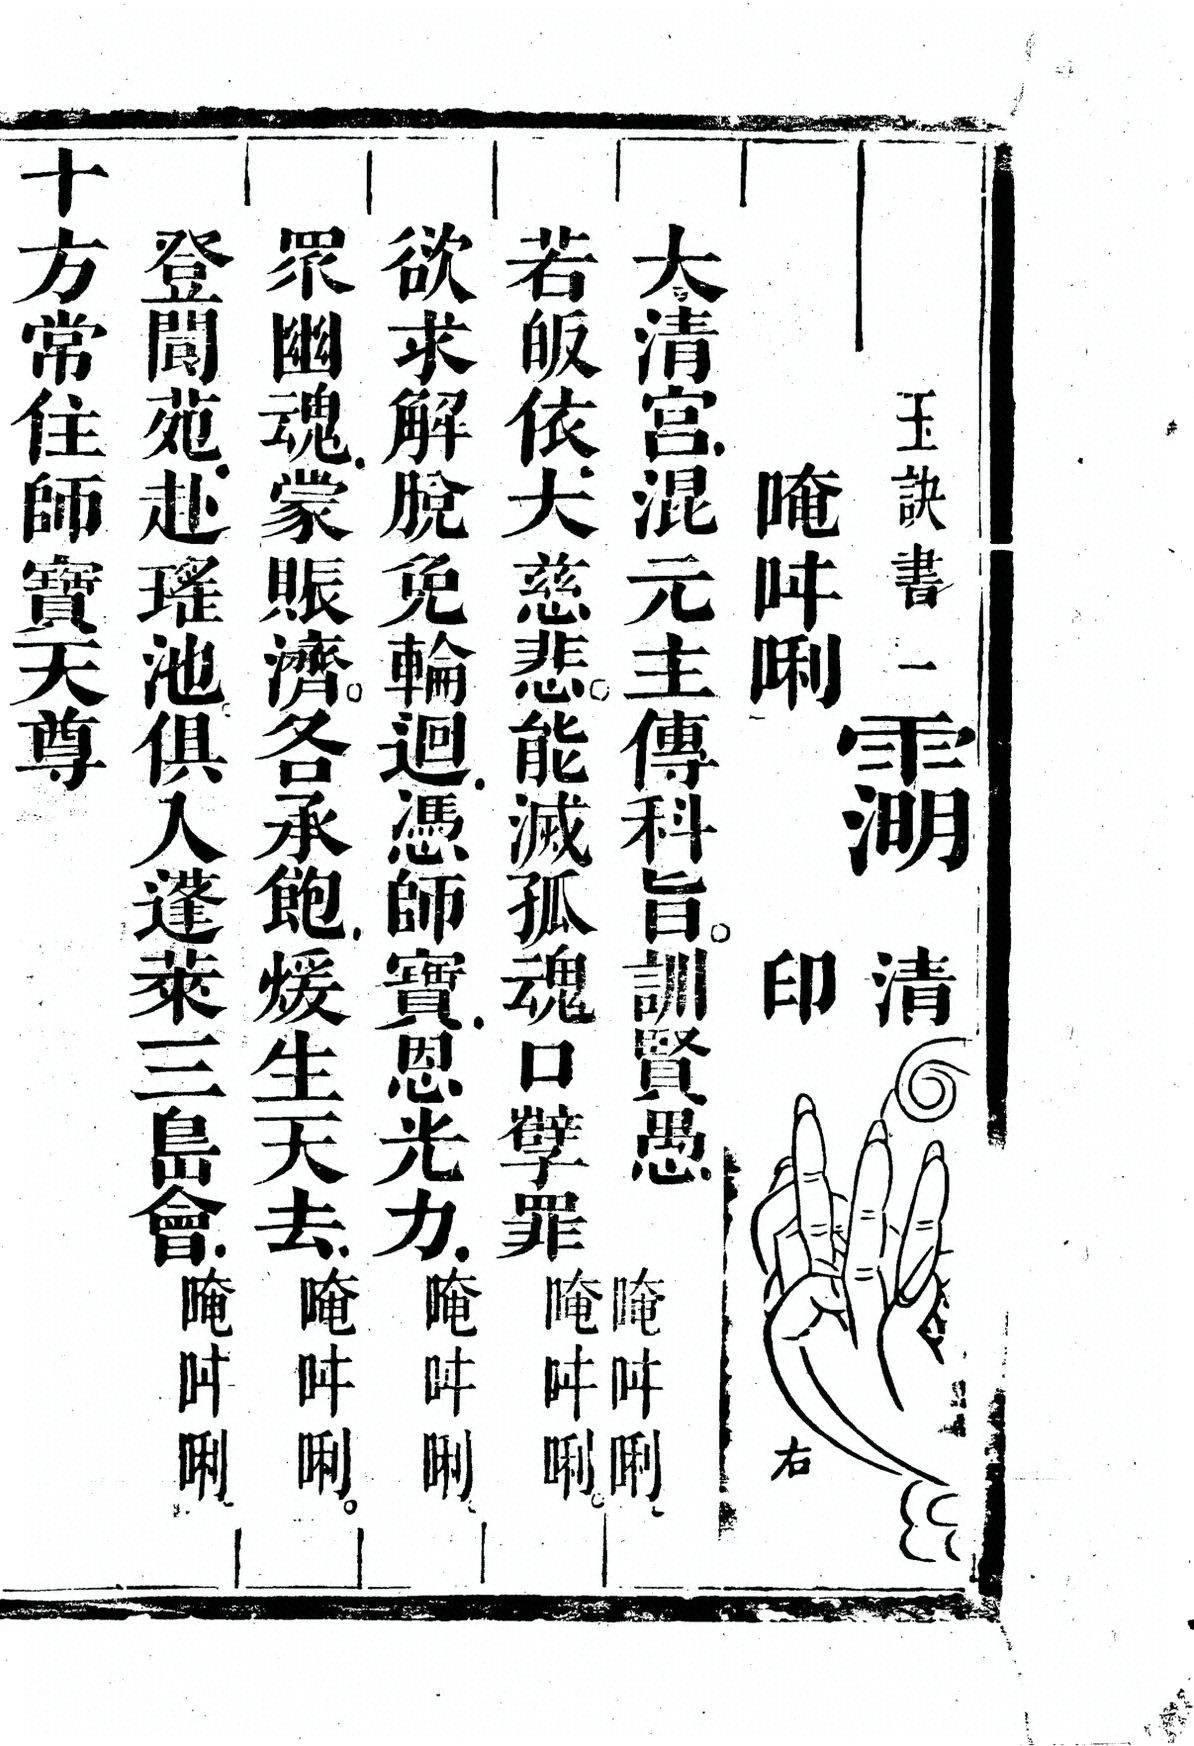 玉訣書一 清
唵吽唎 印
右
太清宮混元主傳科旨訓賢愚 唵吽唎
若皈依大慈悲能滅孤魂口孽罪 唵吽唎
欲求解脫免輪迴憑師寶恩光力 唵吽唎
眾幽魂蒙賑濟各承飽煖生天去 唵吽唎
登閬苑赴瑤池俱人蓬萊三島會 唵吽唎
十方常住師寶天尊